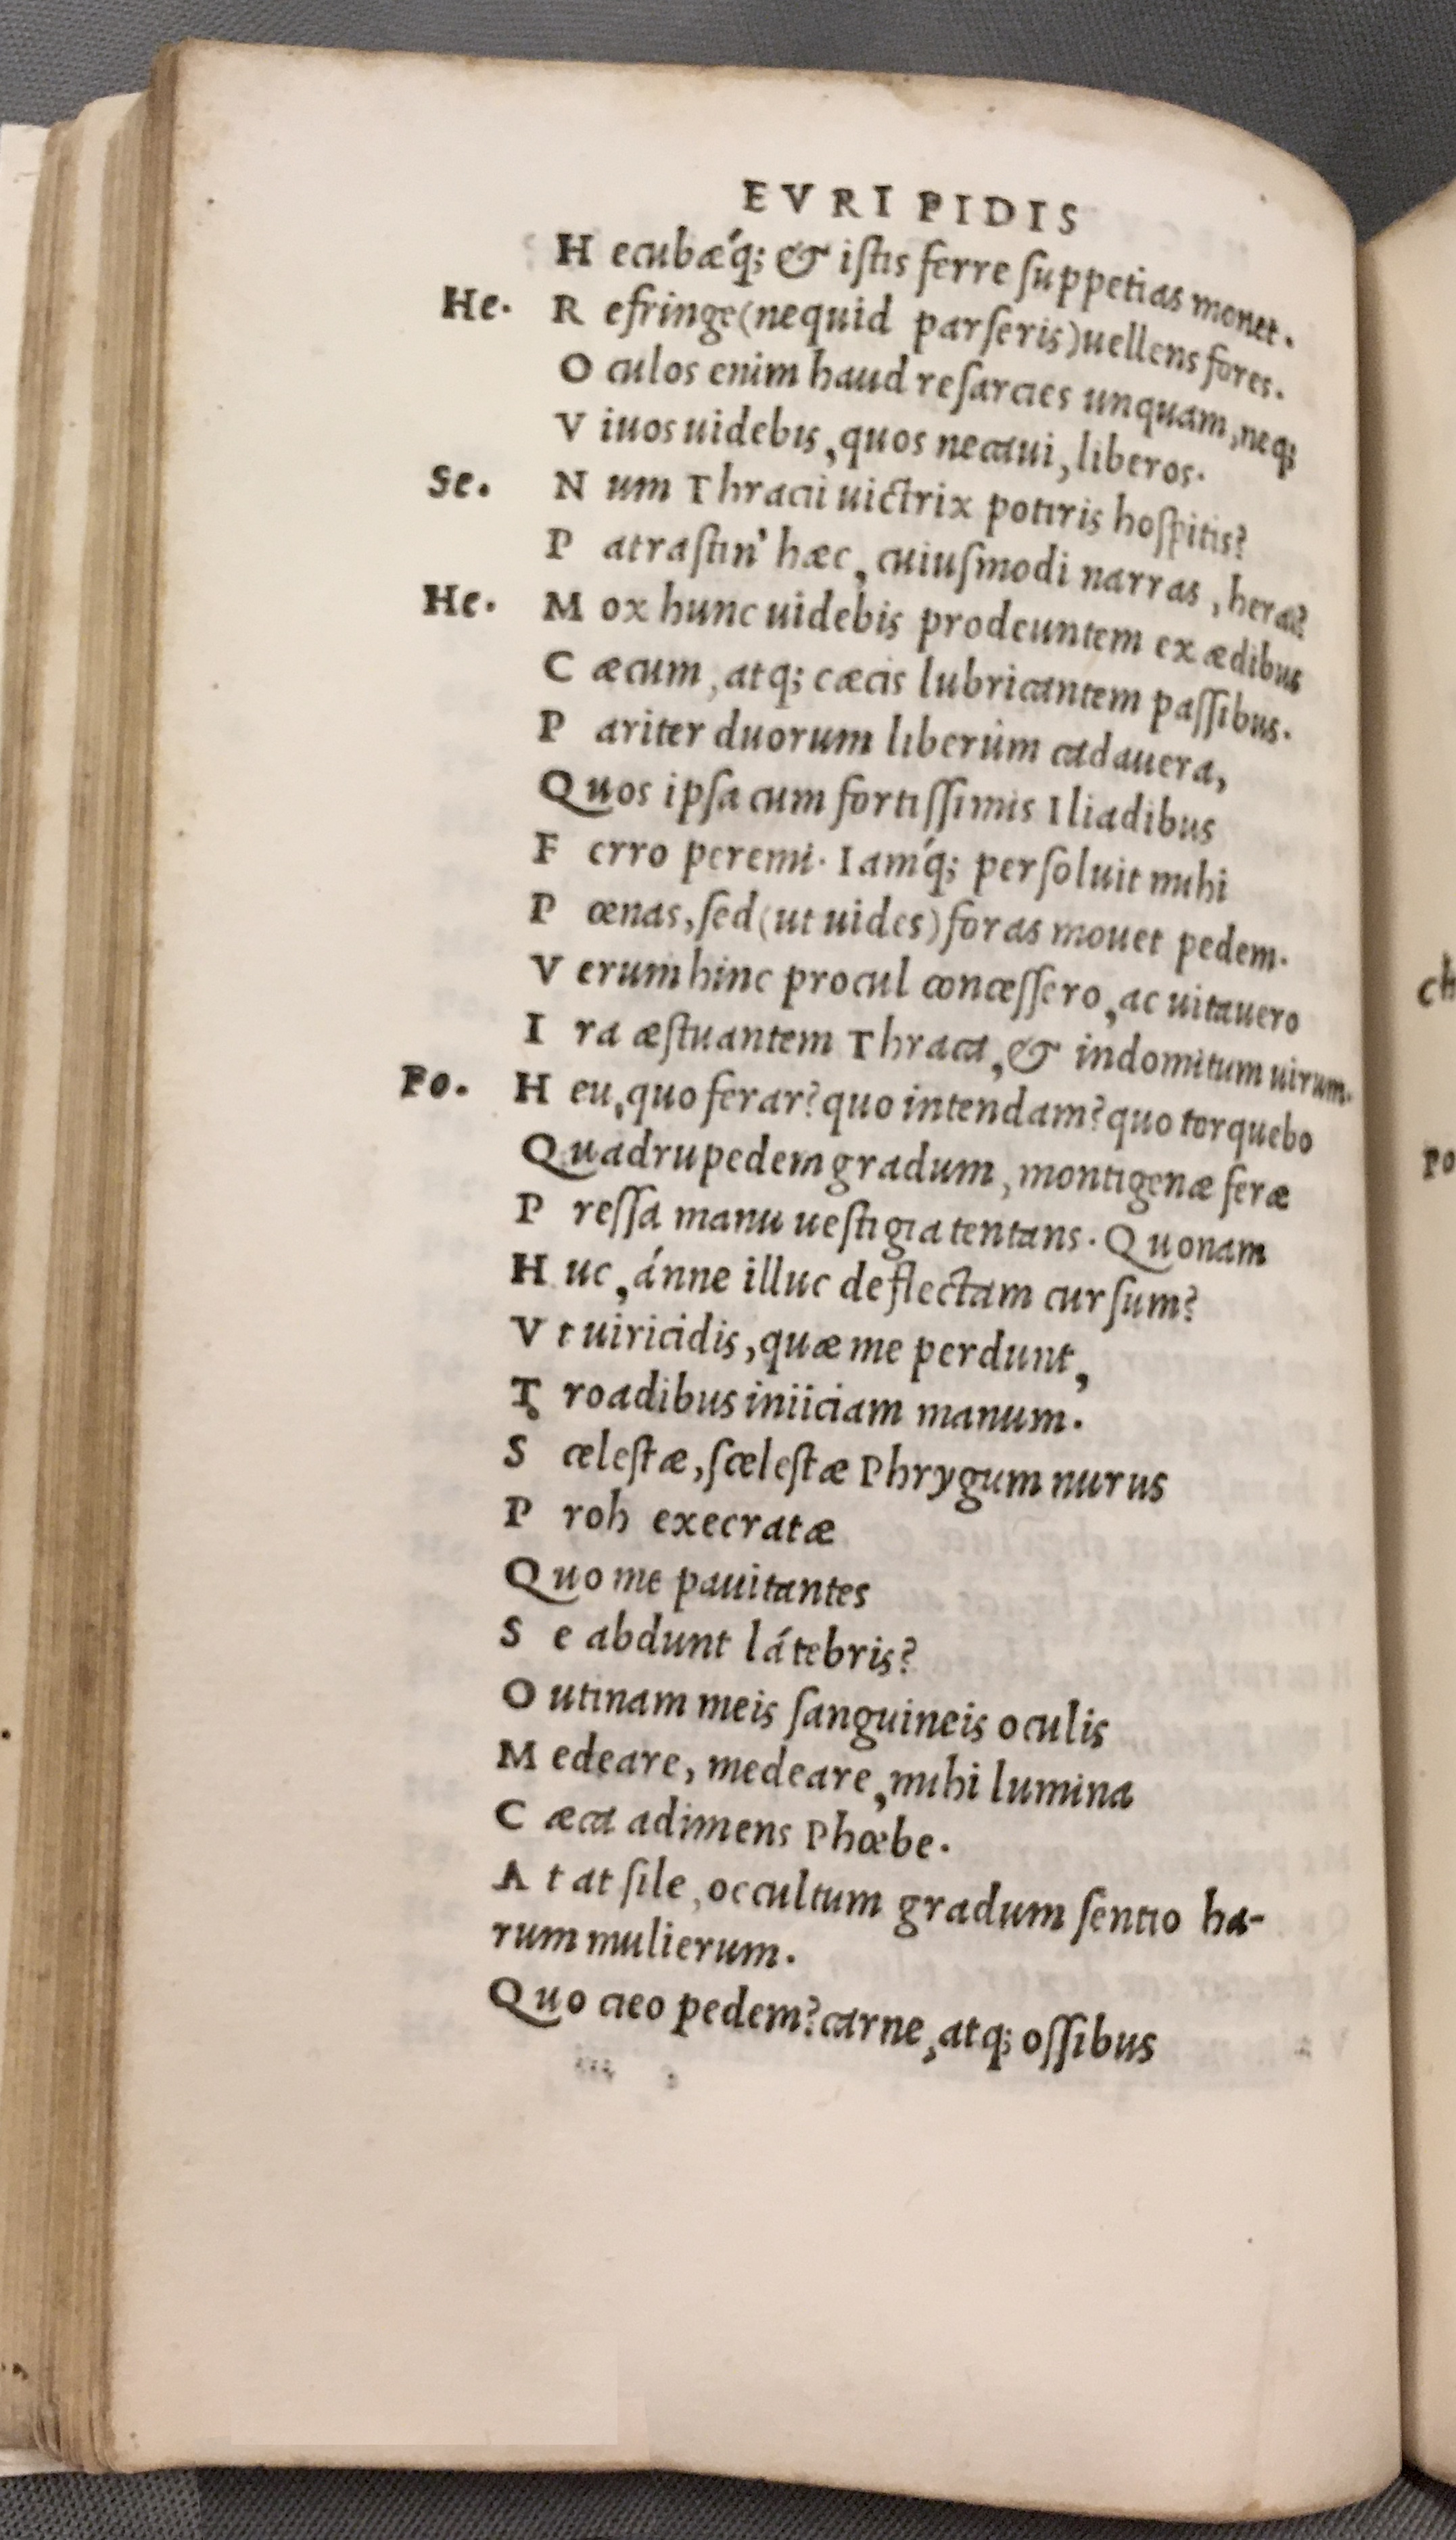 EVRIPIDIS
Hecubæ´q; & iſtis ferre ſuppetias monet.
He. Refringe(nequid parſeris)uellens fores.
Oculos enim haud reſarcies unquam, neq;
Viuos uidebis, quos necaui, liberos.
Se. Num Thracii uictrix potiris hoſpitis?
Patraſtin' hæc, cuiuſmodi narras, hera?
He. Mox hunc uidebis prodeuntem ex ædibus
Cæcum, atq; cæcis lubricantem paſſibus.
Pariter duorum liberûm cadauera,
Quos ipſa cum fortiſſimis Iliadibus
Ferro peremi. Iam´q; perſoluit mihi
Pœnas, ſed(ut uides)foras mouet pedem.
Verum hinc procul conceſſero, ac uitauero
Ira æſtuantem Thraca, & indomitum uirum.
Po. Heu, quo ferar? quo intendam? quo torquebo
Quadrupedem gradum, montigenæ feræ
Preſſa manu ueſtigia tentans. Quonam
Huc, ánne illuc deflectam curſum?
Vt uiricidis, quæ me perdunt,
Troadibus iniiciam manum.
Sceleſtæ, ſceleſtæ Phrygum nurus
Proh execratæ
Quo me pauitantes
Se abdunt látebris?
O utinam meis ſanguineis oculis
Medeare, medeare, mihi lumina
Cæca adimens Phœbe.
At at ſile, occultum gradum ſentio ha-
rum mulierum.
Quo cieo pedem? carne, atq; oſſibus
ch
Po